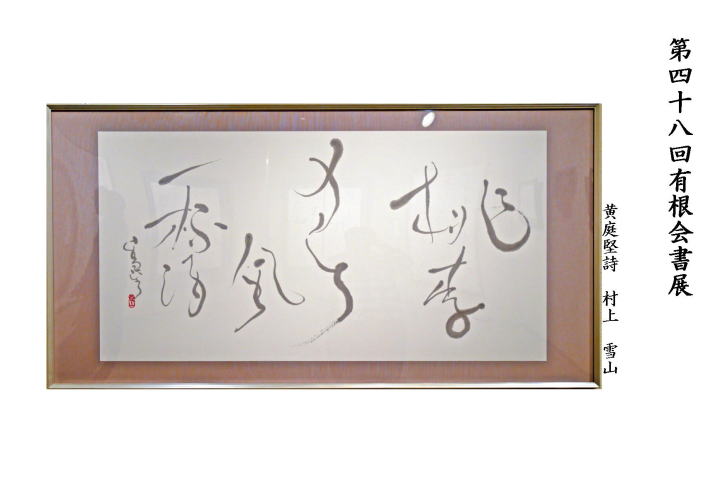 第四十八回有根会書展
黄庭堅詩 村上 雪山
桃李
春
風
一杯酒